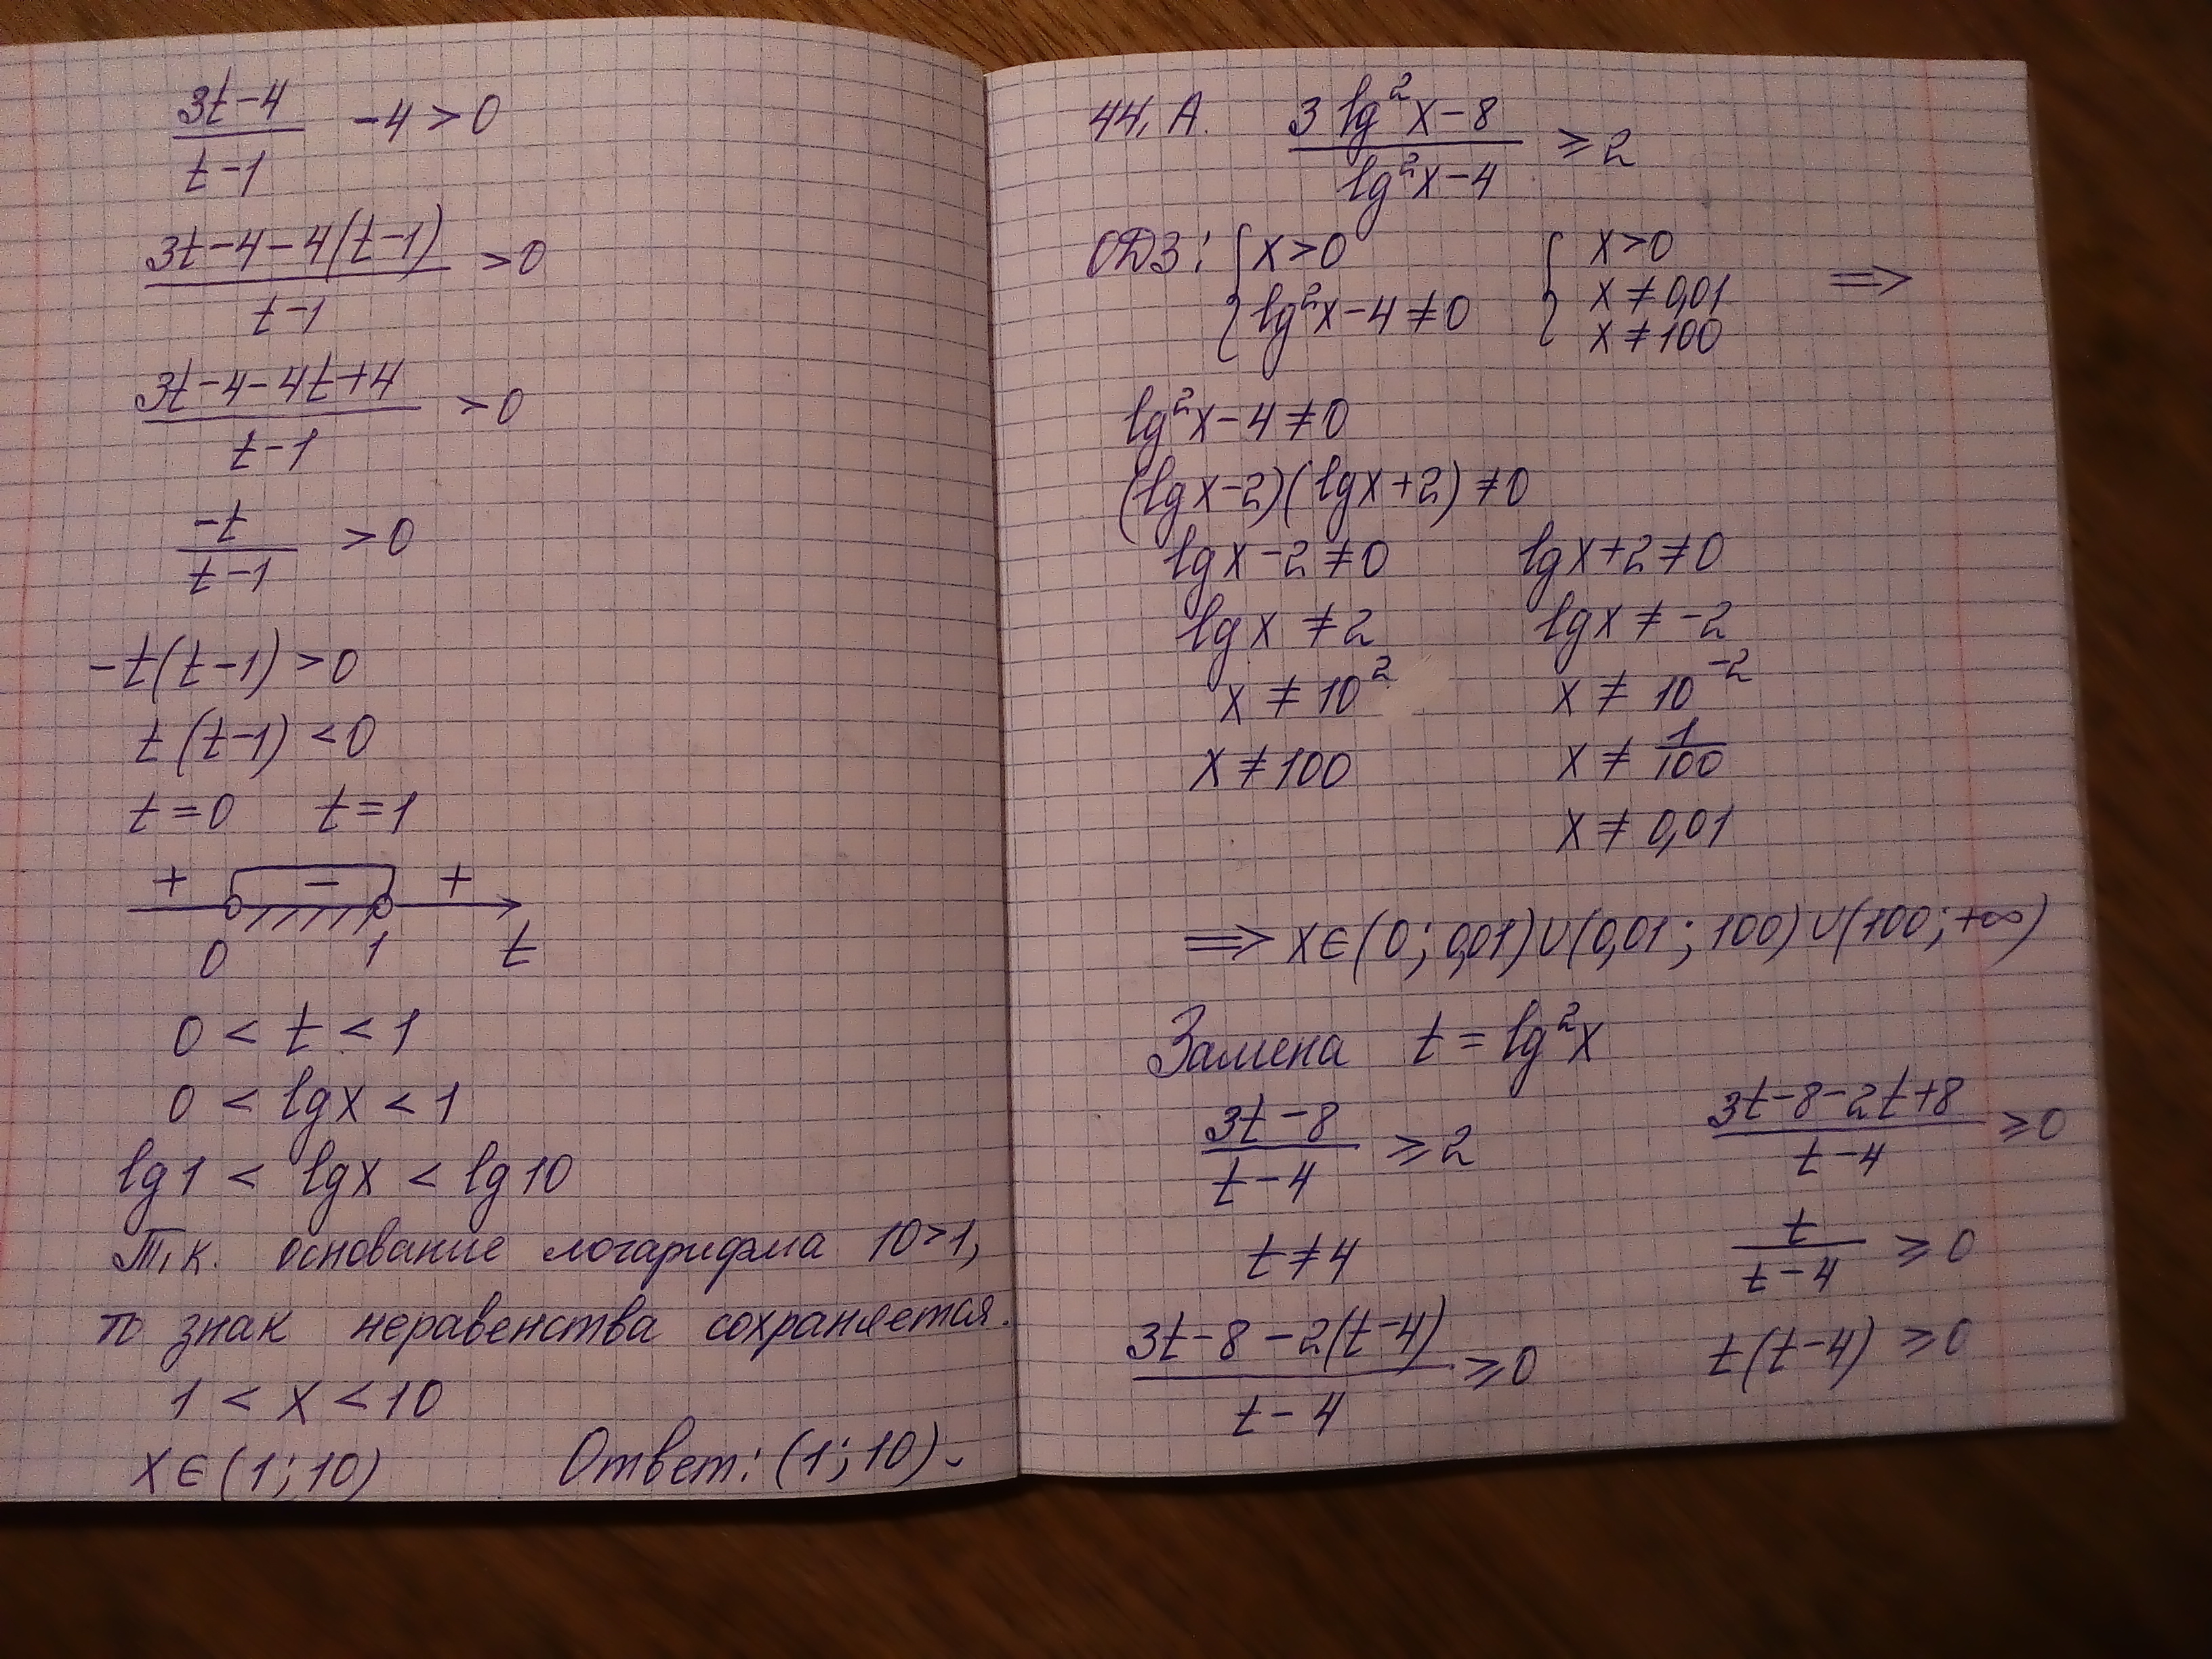 (3t-4)/(t-1) -4>0
(3t-4-4(t-1))/(t-1) >0
(3t-4-4t+4)/(t-1) >0
-t/(t-1) >0
-t(t-1)>0
t(t-1)<0
t=0 t=1
+ - +
0 1 t
0 < t < 1
0 < lgx < 1
lg1 < lgx < lg10
Т.к. основание логарифма 10>1,
то знак неравенства сохраняется.
1 < x < 10
x∈(1;10) Ответ: (1;10).
44. А. (3lg²x-8)/(lg²x-4) ≥2
ОДЗ: { x>0 { x>0
lg²x-4≠0 x≠0,01 =>
x≠100
lg²x-4≠0
(lgx-2)(lgx+2)≠0
lgx-2≠0 lgx+2≠0
lgx≠2 lgx≠-2
x≠10² x≠10⁻²
x≠100 x≠1/100
x≠0,01
=> x∈(0;0,01)∪(0,01;100)∪(100;+∞)
Замена t=lg²x
(3t-8)/(t-4) ≥2
t≠4
(3t-8-2(t-4))/(t-4) ≥0
(3t-8-2t+8)/(t-4) ≥0
t/(t-4) ≥0
t(t-4)≥0